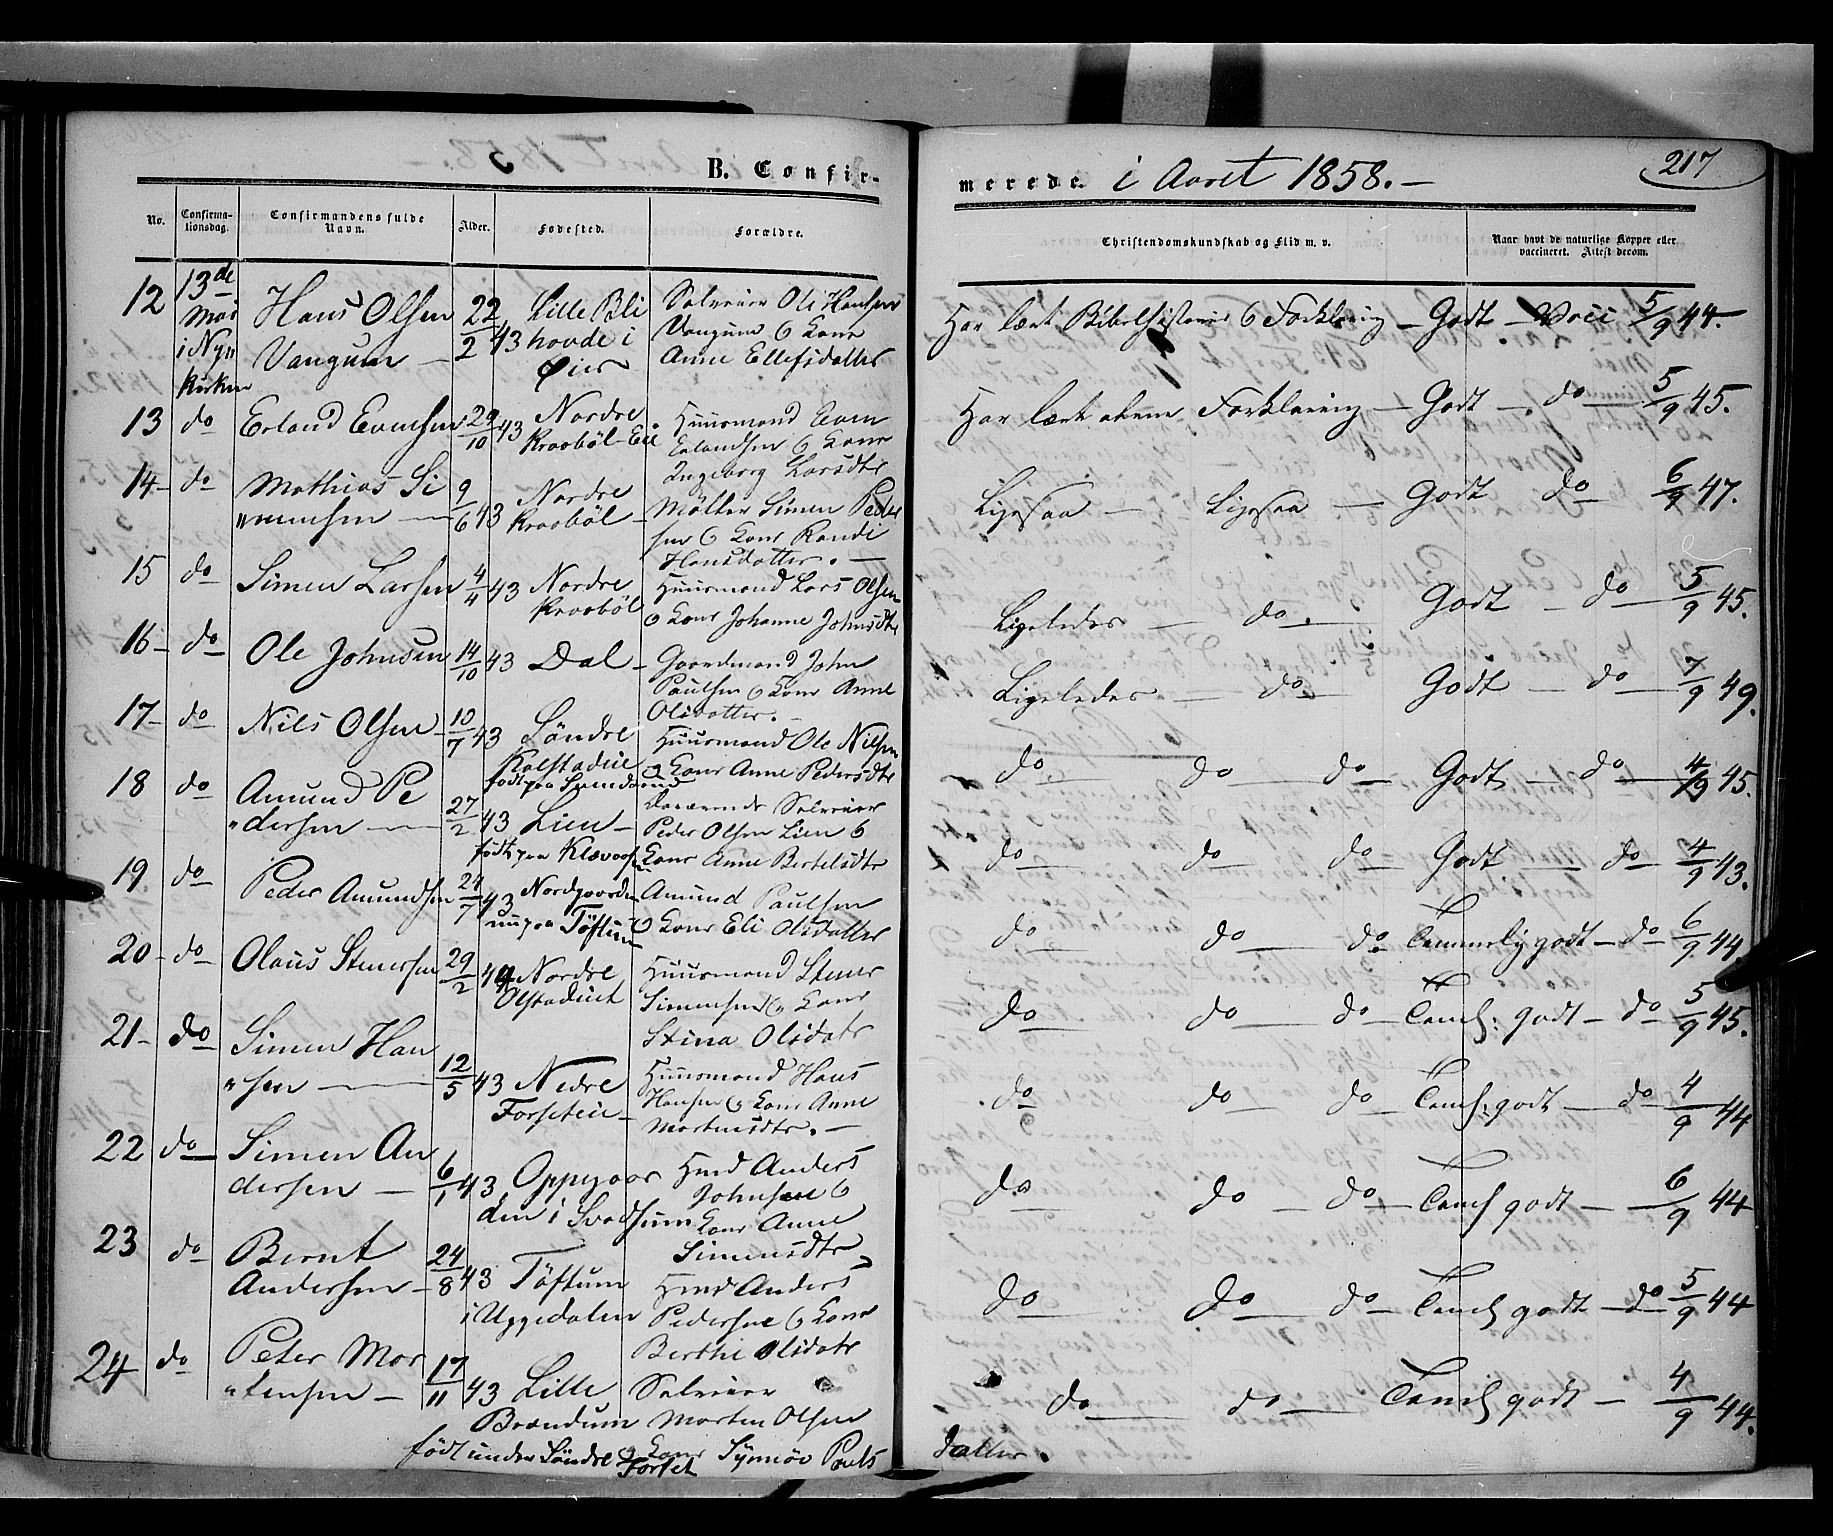 B. Confir-
merede. i Aaret 1858.-
217
No.
Confirma-
tionsdag.
Confirmandens fulde
Navn.
Alder.
Fødested.
Forældre.
Christendomskundskab og Flid m. v.
Naar havt de naturlige Kopper eller
vaccineret. Attest derom.
12 13de Mai i Nye Kirken
Hans Olsen
Vangum —
22/2 43
Lille Bli
hovde i
Øier
Selveier Ole Hansen
Vangum & Kone
Anne Ellefsdatter
Har lært Bibelhistorie & Forklaring — Godt — Vacc 5/9 44.
13 do Erland Evensen 29/10 43
Nordre
Kraabøl-Eie
Huusmand Even
Erlandsen & Kone
Ingeborg Larsdtr
Har lært denne Forklaring — Godt — do — 5/9 45.
14 - do Mathias Si
"mensen —
9/6 43
Nordre
Kraabøl -
Møller Simen Peder
sen & Kone Randi
Hansdatter. —
Ligesaa — Ligesaa — Godt do 6/9 47.
15 do Simen Larsen 4/4 43
Nordre
Kraabøl
Huusmand Lars Olsen
& Kone Johanne Johnsdtr
Ligeledes — do. Godt — do — 5/9 45.
16 - do Ole Johnsen 14/10 43 Dal -
Gaardmand John
Paulsen & Kone Anne
Olsdatter. -
Ligeledes — do — Godt — do — 7/9 49.
17 - do Nils Olsen 10/7 43
Søndre
Kolstadeie
Huusmand Ole Nilsen
& Kone Anne Pedersdtr
do — do — do — Godt — do — 4/9 45.
18 do Amund Pe
"dersen —
27/2 43
Lien -
Daværende Selveier
Peder Olsen Lien &
Kone Anne Bertelsdtr
do — do — do Godt. — do — 4/9 43.
19 do Peder Amundsen 24/7 43
født paa Klævaasen
Nordgaarden
nu paa Tøftum
Amund Paulsen
& Kone Eli Olsdatter
do — do — do Temmelig godt — do — 6/9 44.
20 - do Olaus Stenersen 29/2 44
Nordre
Olstadeiet
Huusmand Stener
Simensen & Kone
Stina Olsdatr
do — do — do — Teml: godt — do — 5/9 45.
21 - do Simen Han
"sen —
12/5 43
Nedre
Forseteie -
Huusmand Hans
Hansen & Kone Anne
Mortensdtr. —
do do — do — Teml: godt — do — 4/9 44
22 do Simen An
dersen —
6/1 43
Oppegaar
den i Svadsum
Hmd Anders
Johnsen &
Kone Anne
Simensdtr
do do — do — Teml godt — 6/9 44
23 do Bernt
Andersen —
24/8 43
Tøftum
i Uggedalen
Hmd Anders
Pedersen & Kone
Berthe Olsdatr
do — do — do — Teml godt — do — 5/9 44
24 do Peter Mor
"tensen —
17/11 43
Lille
Brændum
født under Søndre
Forset
Selveier
Morten Olsen
& Kone Synnøv Pauls
datter.
do — do — Teml godt — 4/9 44.